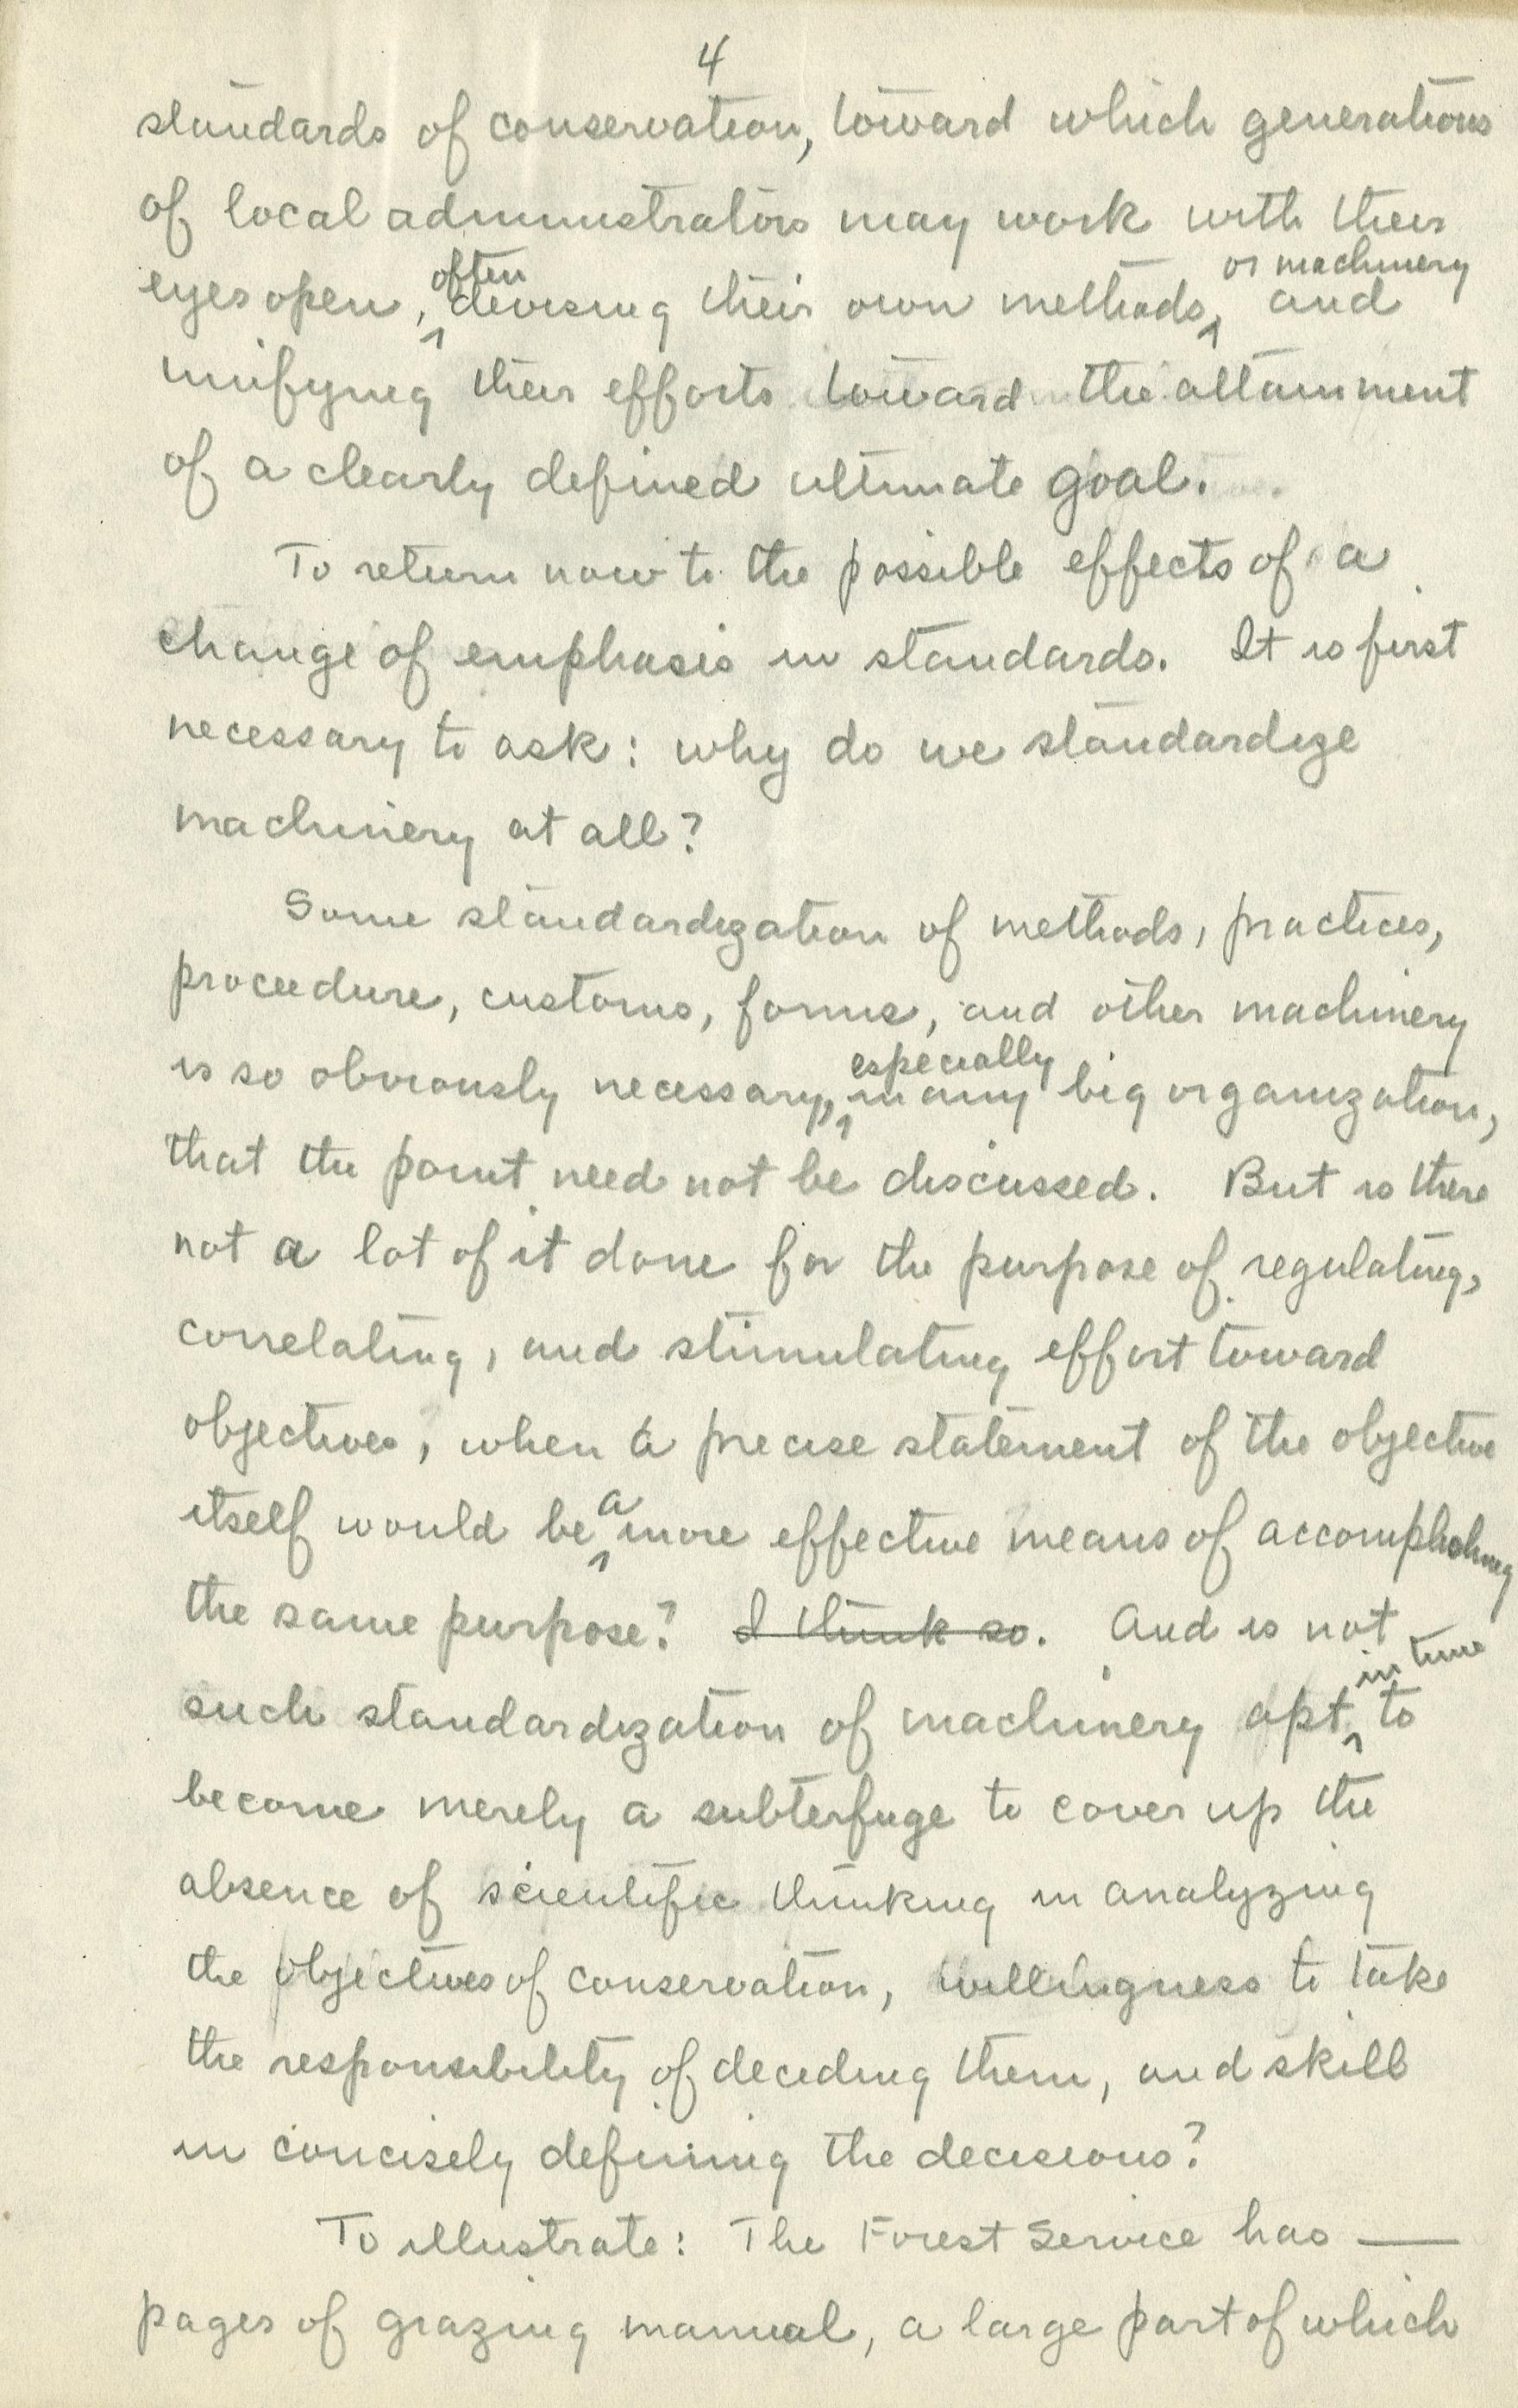 4
standards of conservation, toward which generations
of local administrators may work with their
eyes open, often devising their own methods, or machinery and
unifying their efforts toward the attainment
of a clearly defined ultimate goal.
To return now to the possible effects of a
change of emphasis in standards. It is first
necessary to ask: why do we standardize
machinery at all?
Some standardization of methods, practices,
proceedure, customs, forms, and other machinery
is so obviously necessary, especially in any big organization,
that the point need not be discussed. But is there
not a lot of it done for the purpose of regulating,
correlating, and stimulating effort toward
objectives, when a precise statement of the objective
itself would be a more effective means of accomplishing
the same purpose? I think so. And is not
such standardization of machinery apt in time to
become merely a subterfuge to cover up the
absence of scientific thinking in analyzing
the objectives of conservation, willingness to take
the responsibility of deciding them, and skill
in concisely defining the decisions?
To illustrate: The Forest Service has —
pages of grazing manual, a large part of which